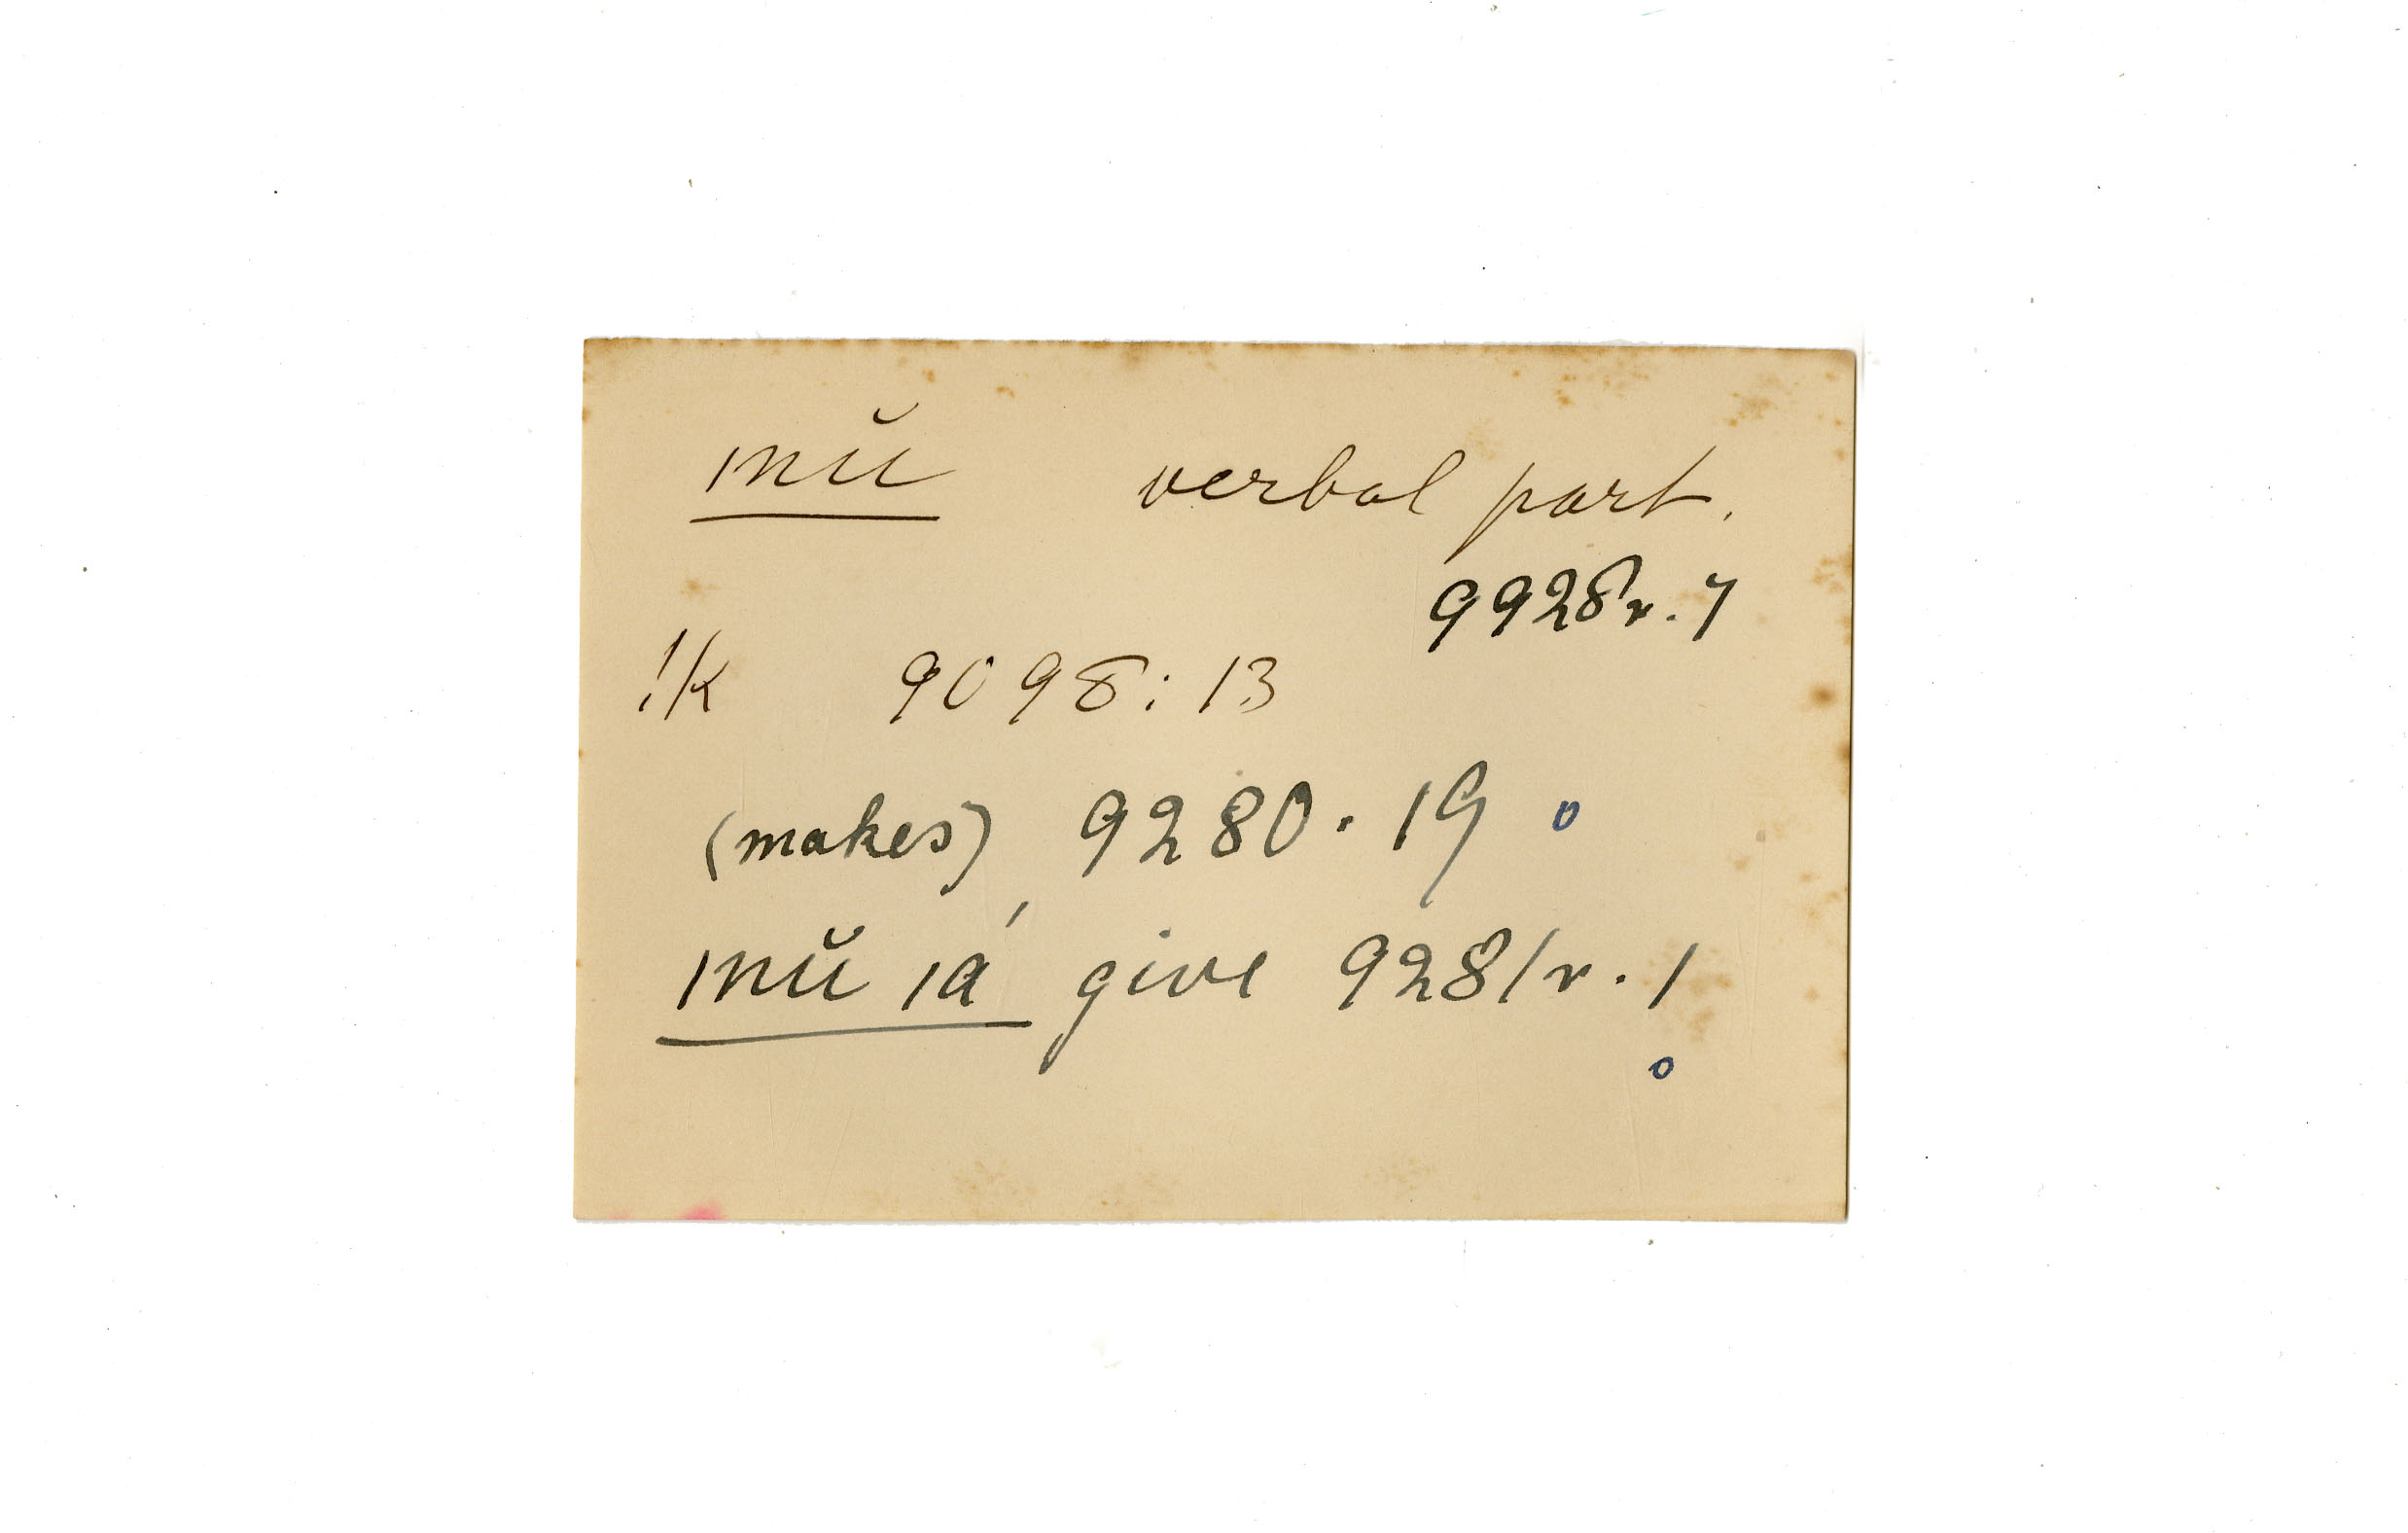 ınŭ verbal part.
9928r. 7
!k 9098: 13
(makes) 9280. 19 o
ınŭ ıá give 9281r. 1
o